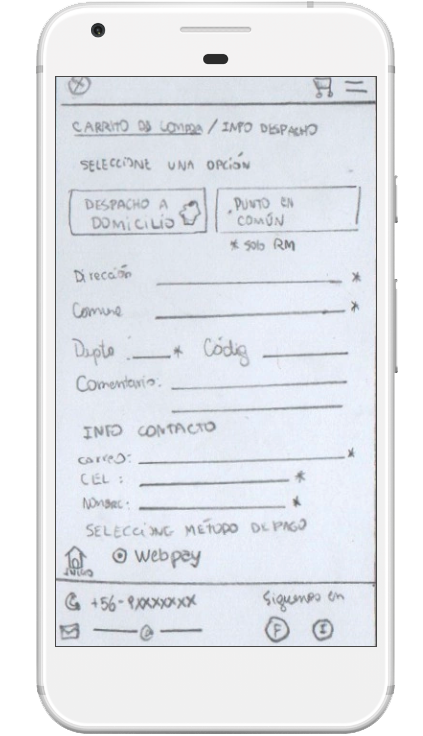 CARRITO DE COMPRA / INFO DESPACHO
SELECCIONE UNA OPCIÓN
DESPACHO A DOMICILIO
PUNTO EN COMÚN
* SOLO RM
Dirección *
Comuna *
Depto : * Códig
Comentario:
INFO CONTACTO
correo: *
CEL : *
Nombre: *
SELECCIONE METODO DE PAGO
Webpay
INICIO
+56-9XXXXXXX Siguenos en
@ F I